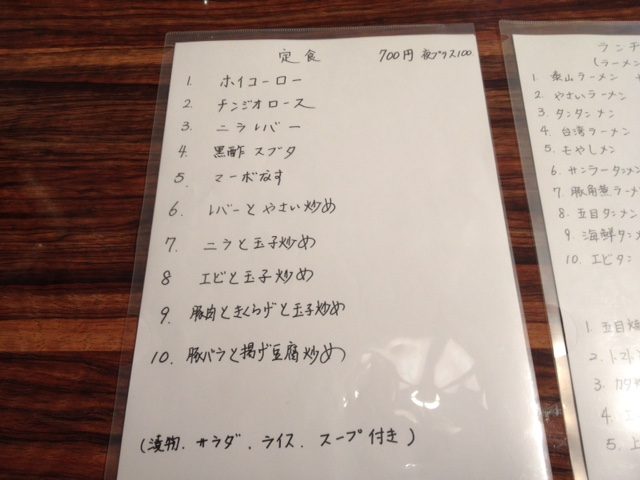 定食 700円 夜プラス100
1. ホイコーロー
2. チンジオロース
3. ニラレバー
4. 黒酢スブタ
5. マーボなす
6. レバーとやさい炒め
7. ニラと玉子炒め
8 エビと玉子炒め
9. 豚肉ときくらげと玉子炒め
10. 豚バラと揚げ豆腐炒め
(漬物、サラダ、ライス、スープ付き)
ランチ
(ラーメン
1. 泰山ラーメン
2. やさいラーメン
3. タンタンメン
4. 台湾ラーメン
5. もやしメン
6. サンラータンメン
7. 豚角煮ラーメン
8. 五目タンメン
9. 海鮮タンメ
10. エビタン
1. 五目焼
2. トマト
3. カタヤ
4. エ
5. 上